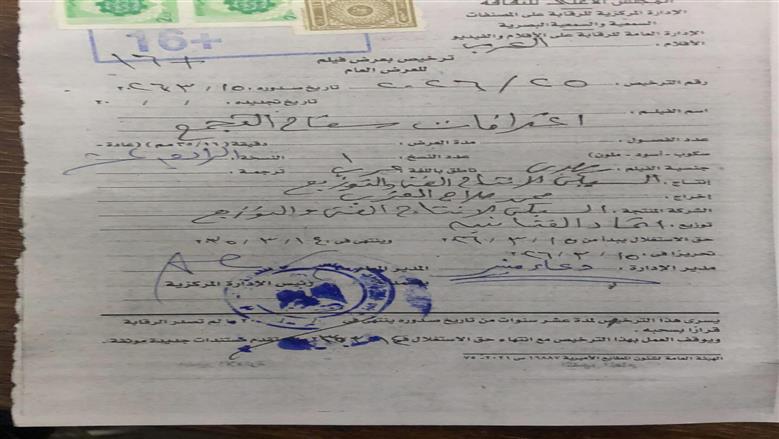 المجلس الأعلى للثقافة
الإدارة المركزية للرقابة على المصنفات
السمعية والسمعية البصرية
الإدارة العامة للرقابة على الأفلام والفيديو
الأفلام : العربى
16+
ترخيص بعرض فيلم
للعرض العام
+١٦
رقم الترخيص : ٢٥ / ٢٠٢٦ تاريخ صدوره : ١٥ / ٣ / ٢٠٢٦
تاريخ تجديده : / / ٢٠
اسم الفيلم : اعترافات سفاح التجمع
عدد الفصول : مدة العرض : دقيقة (٣٥/١٦ مم) (عادة -
سكوب - أسود - ملون) عدد النسخ : ١ النسخة :
جنسية الفيلم : مصرى ناطق باللغة : عربى ترجمة :
إنتاج : السبكى للإنتاج الفنى والتوزيع
إخراج : محمد صلاح العزب
الشركة المنتجة : السبكى للإنتاج الفنى والتوزيع
توزيع : اتحاد الفنانين
حق الاستغلال يبدأ من ١٥ / ٣ / ٢٠٢٦ وينتهى فى ١٤ / ٣ /
تحريرًا فى ١٥ / ٣ / ٢٠٢٦
مدير الإدارة : دعاء منير المدير العام
يعتمد
رئيس الإدارة المركزية
يسرى هذا الترخيص لمدة عشر سنوات من تاريخ صدوره ينتهى فى / / ٢٠ ما لم تصدر الرقابة
قرارًا بسحبه .
ويوقف العمل بهذا الترخيص مع انتهاء حق الاستغلال فى تقدم مستندات جديدة موثقة .
الهيئة العامة لشئون المطابع الأميرية ١٩٨٨٧ س ٢٠٢١ - ٧٥